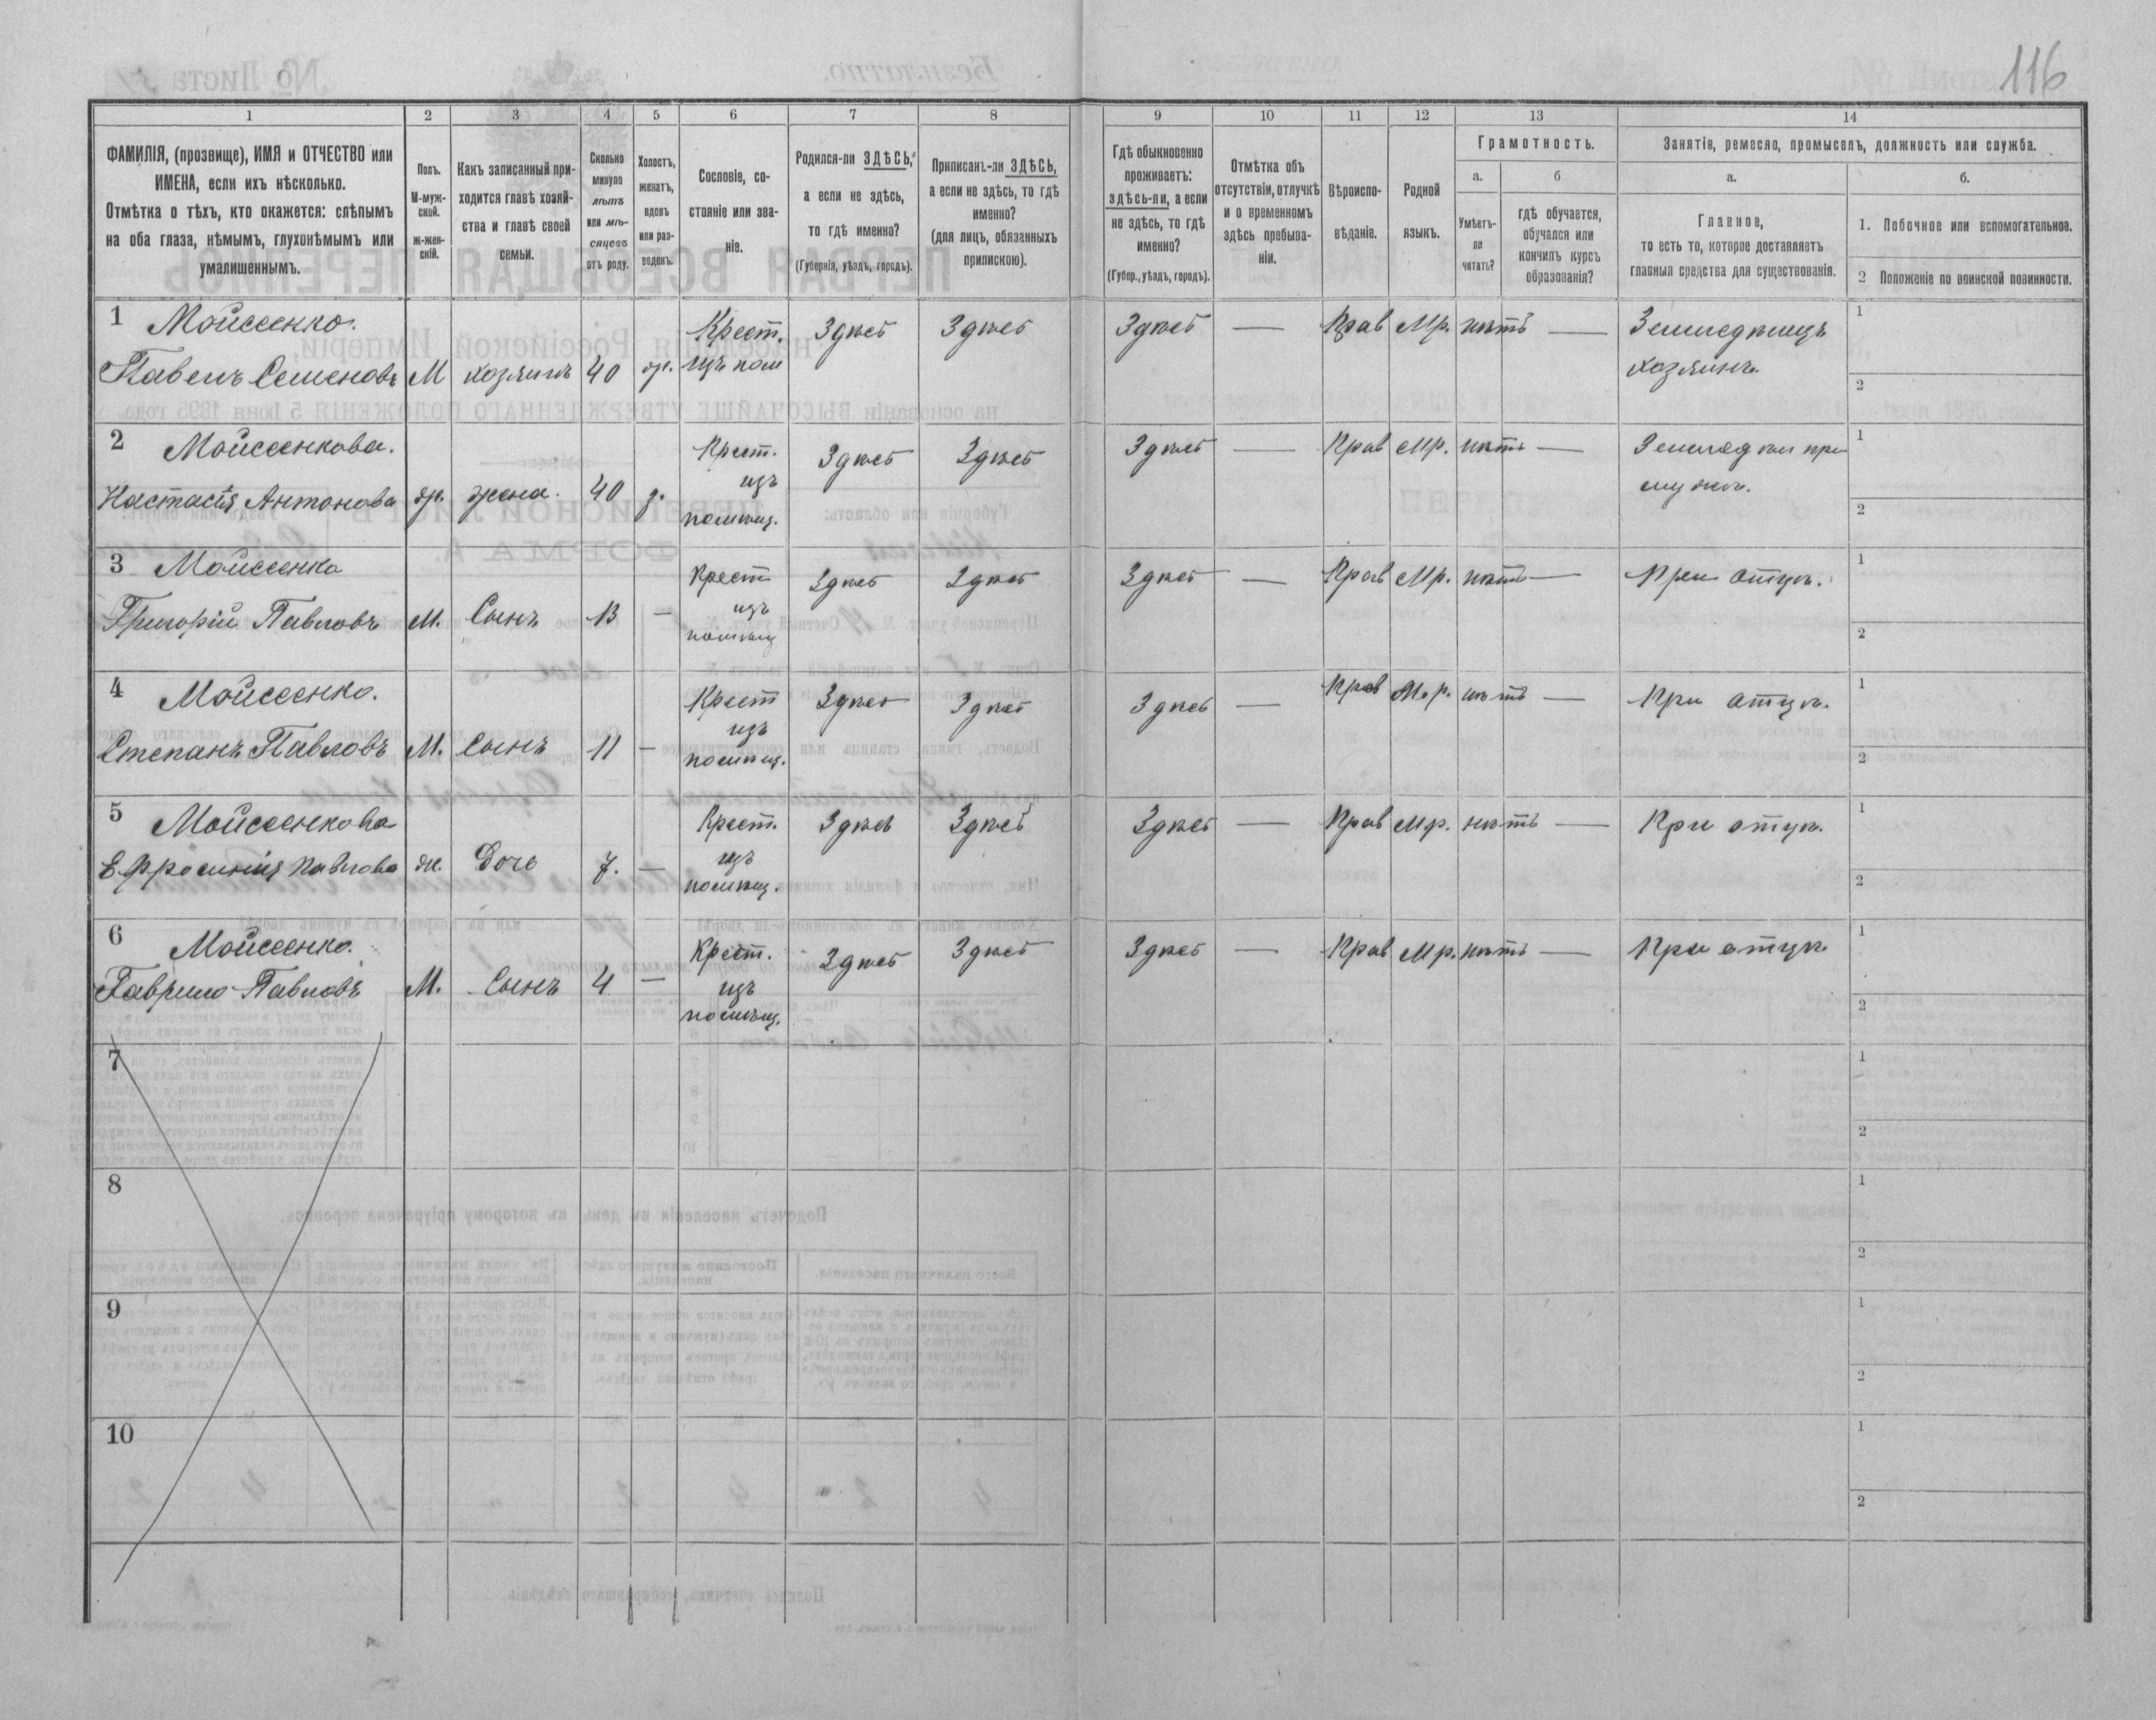 116
1 2 3 4 5 6 7 8 9 10 11 12 13 14
ФАМИЛІЯ, (прозвище), ИМЯ и ОТЧЕСТВО или
ИМЕНА, если ихъ нѣсколько.
Отмѣтка о тѣхъ, кто окажется: слѣпымъ
на оба глаза, нѣмымъ, глухонѣмымъ или
умалишеннымъ.
Полъ.
М-муж-
ской.
ж-жен-
скій.
Какъ записанный при-
ходится главѣ хозяй-
ства и главѣ своей
семьи.
Сколько
минуло
лѣтъ
или мѣ-
сяцевъ
отъ роду.
Холостъ,
женатъ,
вдовъ
или раз-
веденъ.
Сословіе, со-
стояніе или зва-
ніе.
Родился-ли ЗДѢСЬ,
а если не здѣсь,
то гдѣ именно?
(Губернія, уѣздъ, городъ).
Приписанъ-ли ЗДѢСЬ,
а если не здѣсь, то гдѣ
именно?
(для лицъ, обязанныхъ
припискою).
Гдѣ обыкновенно
проживаетъ:
здѣсь-ли, а если
не здѣсь, то гдѣ
именно?
(Губер., уѣздъ, городъ).
Отмѣтка объ
отсутствіи, отлучкѣ
и о временномъ
здѣсь пребыва-
ніи.
Вѣроиспо-
вѣданіе.
Родной
языкъ.
Грамотность.
а.
Умѣетъ-
ли
читать?
б
гдѣ обучается,
обучался или
кончилъ курсъ
образованія?
Занятіе, ремесло, промыселъ, должность или служба.
а.
Главное,
то есть то, которое доставляетъ
главныя средства для существованія.
б.
1. Побочное или вспомогательное.
2 Положеніе по воинской повинности.
1 Мойсеенко. Крест. Здѣсь Здѣсь Здѣсь — Прав Мр. нѣтъ — Земледѣлецъ 1
Павелъ Семеновъ М хозяинъ 40 ж. изъ пом хозяинъ. 2
2 Мойсеенкова. Крест. Здѣсь Здѣсь Здѣсь — Прав Мр. нѣтъ — при 1
изъ
Настасія Антонова ж. жена. 40 з. помѣщ. мужѣ. 2
3 Мойсеенко Крест Здѣсь Здѣсь Здѣсь — Прав Мр. нѣтъ — При отцѣ. 1
изъ
Григорій Павловъ М. Сынъ 13 — помѣщ 2
4 Мойсеенко. Крест Здѣсь Здѣсь Здѣсь — Прав М.р. нѣтъ — При отцѣ. 1
изъ
Степанъ Павловъ М. Сынъ 11 — помѣщ. 2
5 Мойсеенкова Крест. Здѣсь Здѣсь Здѣсь — Прав Мр. нѣтъ — При отцѣ. 1
изъ
Ефросинія Павлова ж. Дочь 7. — помѣщ. 2
6 Мойсеенко. Крест. Здѣсь Здѣсь Здѣсь — Прав Мр. нѣтъ — При отцѣ 1
изъ
Гаврило Павловъ М. Сынъ 4 — помѣщ. 2
7 1
2
8 1
2
9 1
2
10 1
2